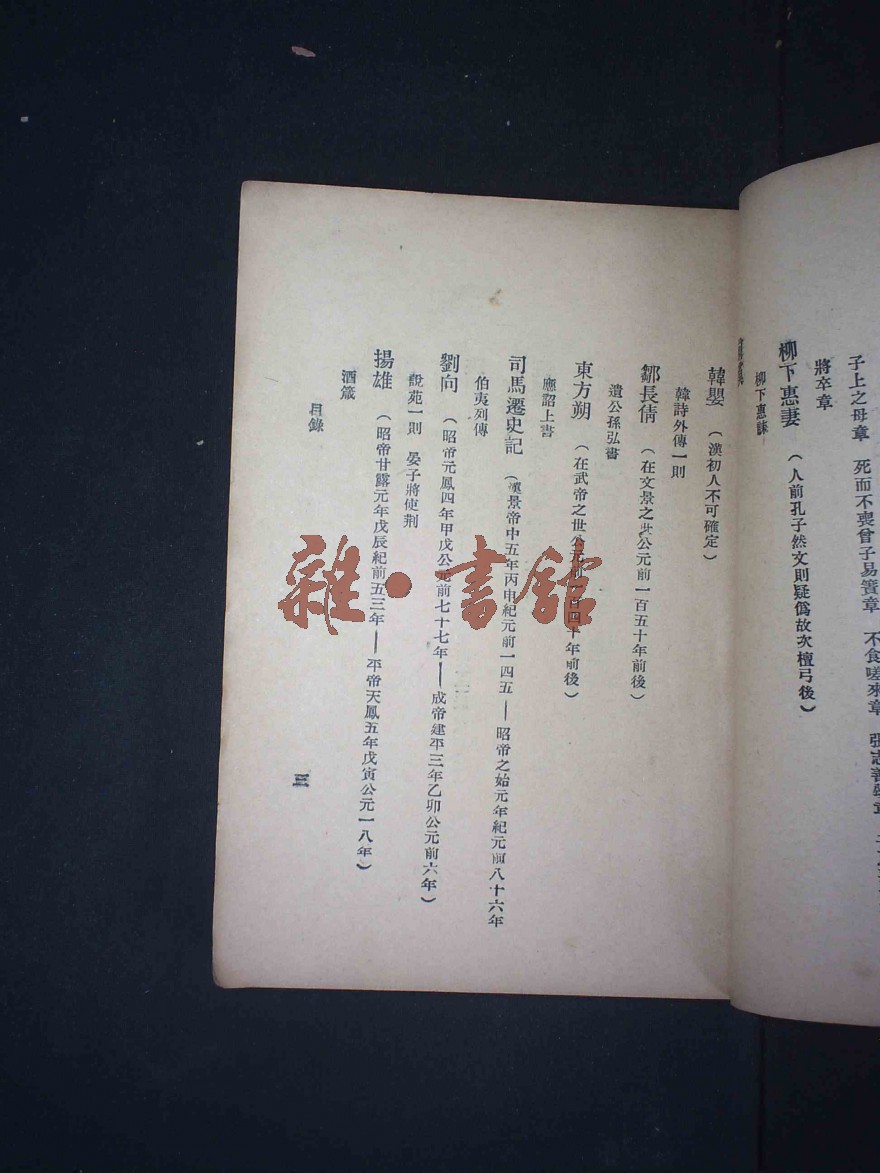 子上之母章　死而不喪曾子易簀章　不食嗟來章
將卒章
柳下惠妻　（人前孔子然文則疑僞故次檀弓後）
柳下惠誄
韓嬰　（漢初人不可確定）
韓詩外傳一則
鄒長倩　（在文景之世公元前一百五十年前後）
遺公孫弘書
東方朔　（在武帝之世公元前一百四十年前後）
應詔上書
司馬遷史記　（漢景帝中五年丙申紀元前一四五——昭帝之始元年紀元前八十六年
伯夷列傳
劉向　（昭帝元鳳四年甲戊公元前七十七年——成帝建平三年乙卯公元前六年）
說苑一則　晏子將使荆
揚雄　（昭帝甘露元年戊辰紀前五三年——平帝天鳳五年戊寅公元一八年）
酒箴
目錄
三
雜·書館